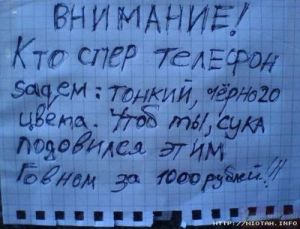 ВНИМАНИЕ!
Кто спер телефон
sадем: тонкий, чёрного
цвета. Чтоб ты, сука
подовился этим
Говном за 1000 рублей!!!
HTTP://NIOTAH.INFO